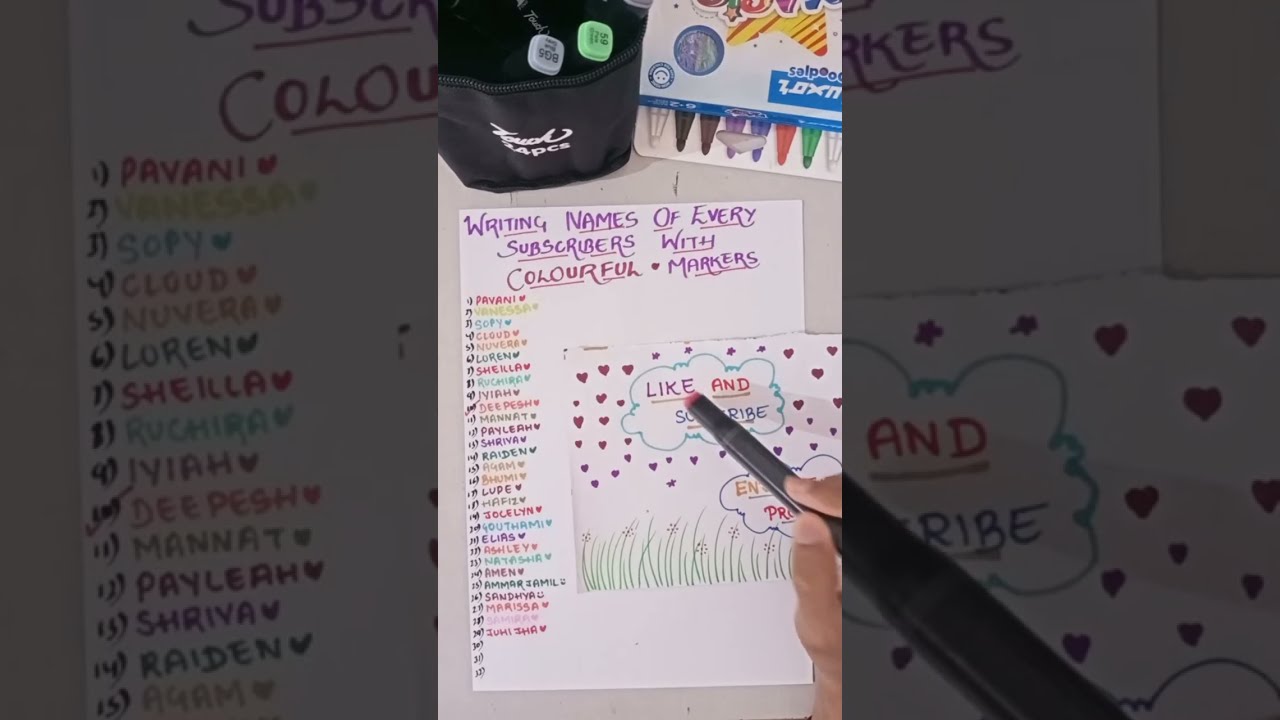 Touch
BG5
59
Touch
24pcs
6+2
Doodles
WRITING NAMES OF EVERY
SUBSCRIBERS WITH
COLOURFUL • MARKERS
1) PAVANI
2) VANESSA
3) SOPY
4) CLOUD
5) NUVERA
6) LOREN
7) SHEILLA
8) RUCHIRA
9) IYIAH
10) DEEPESH
11) MANNAT
12) PAYLEAH
13) SHRIYA
14) RAIDEN
15) AGAM
16) BHUMI
17) LUPE
18) HAFIZ
19) JOCELYN
20) GOUTHAMI
21) ELIAS
22) ASHLEY
23) NATASHA
24) AMEN
25) AMMAR JAMIL
26) SANDHYA
27) MARISSA
28) SAMIRA
29) JUHI JHA
30)
31)
32)
LIKE AND